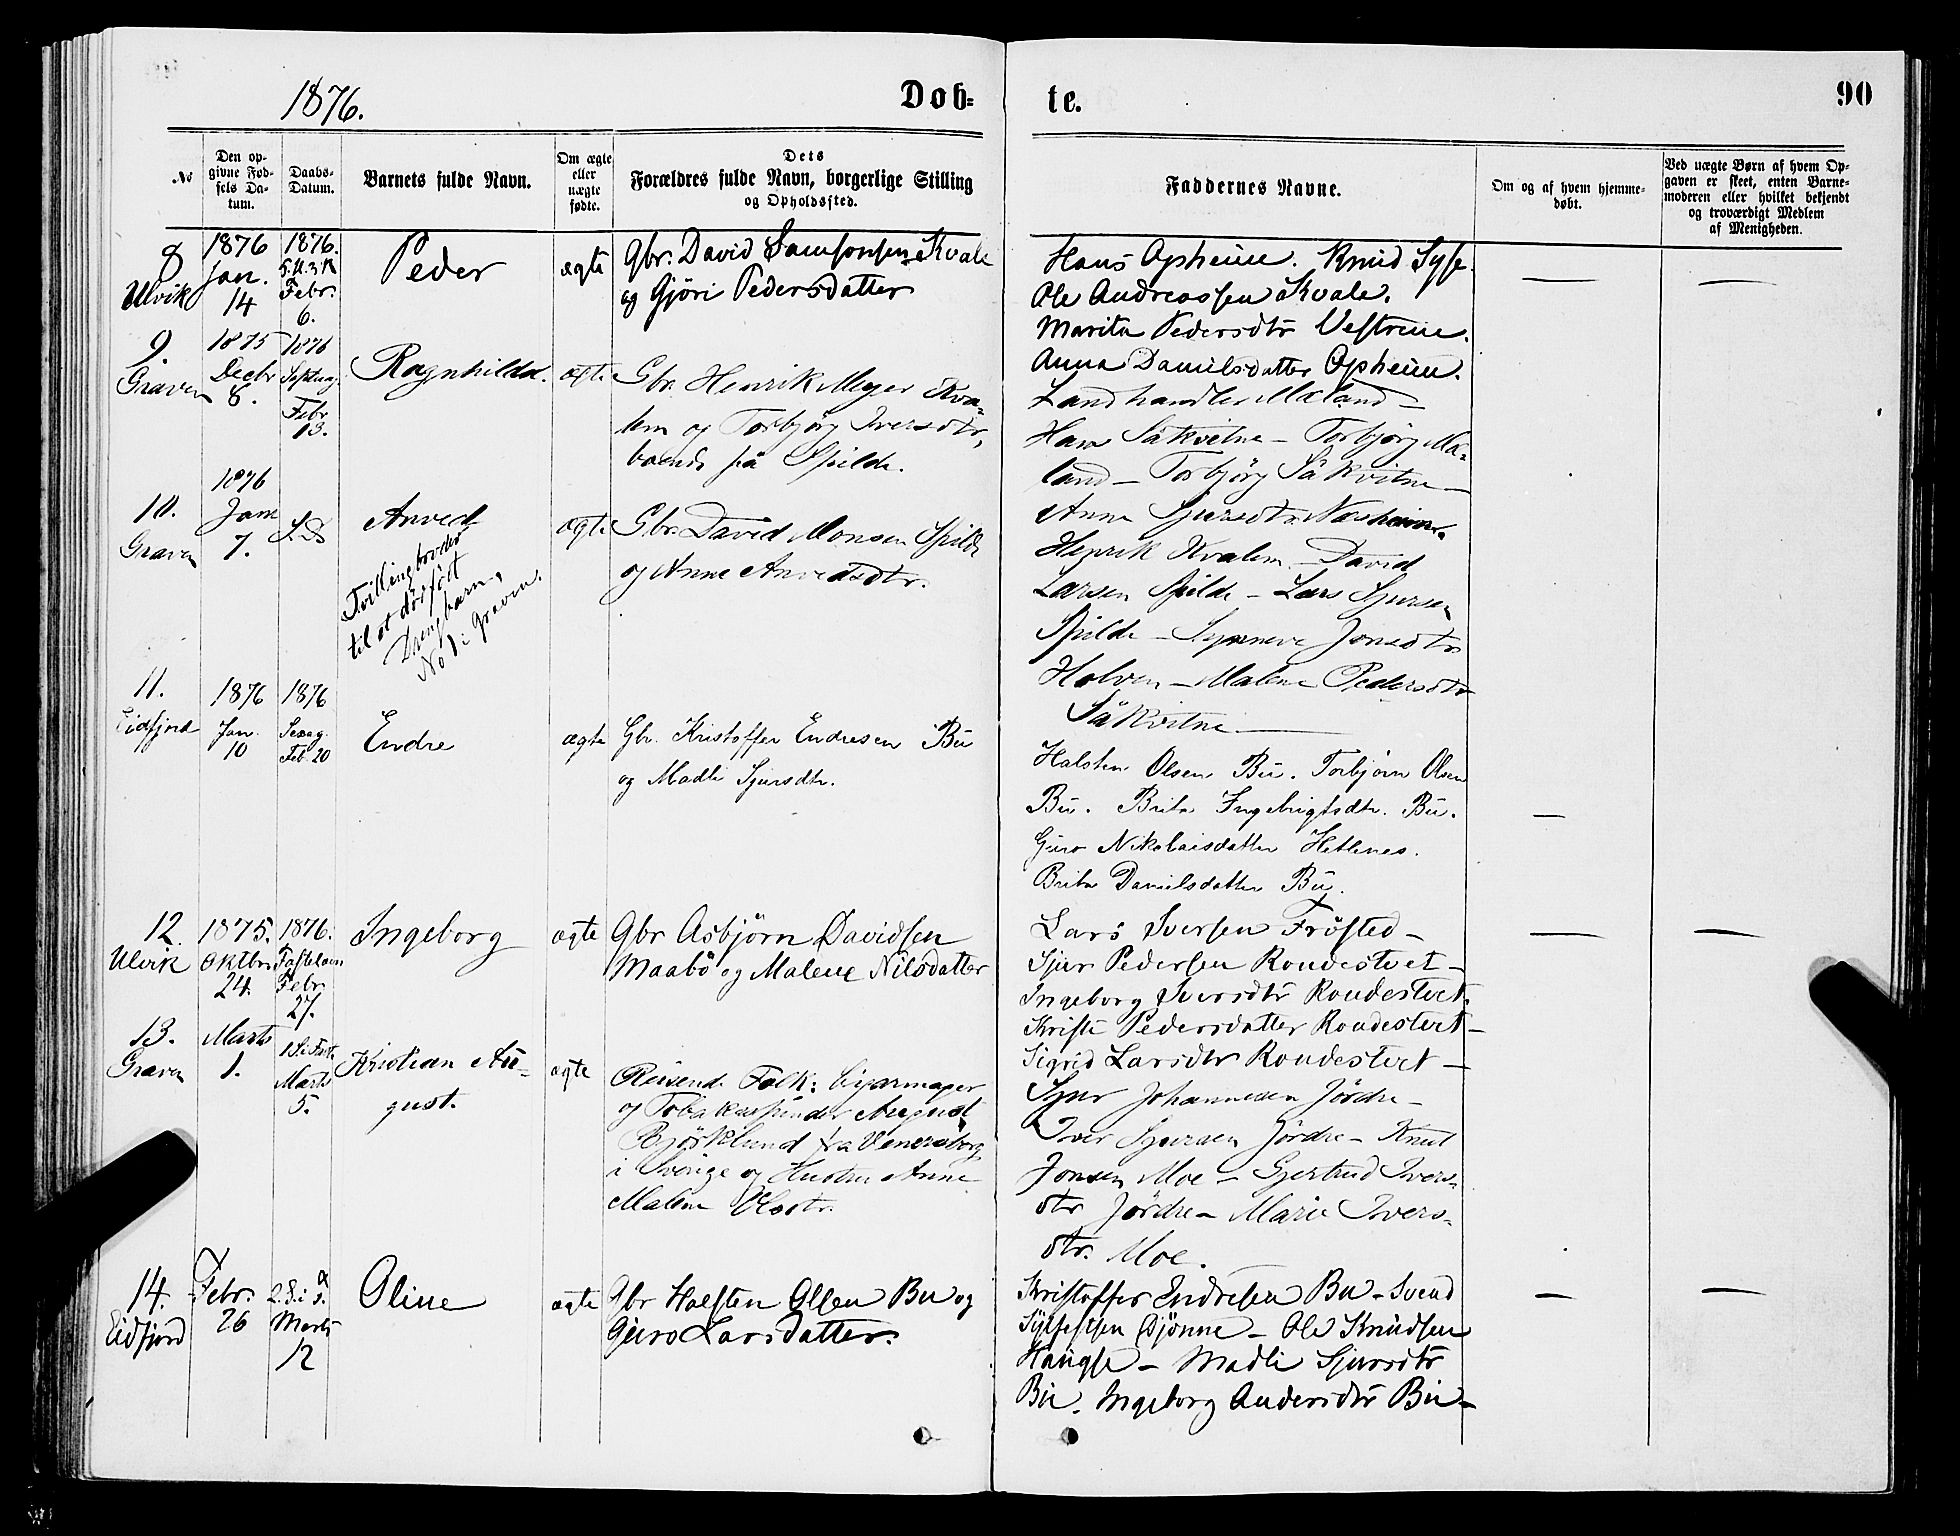 1876.
Døb-
te.
90
No
Den op-
givne Fød-
sels Da-
tum.
Daabs-
Datum.
Barnets fulde Navn.
Om ægte
eller
uægte
fødte.
Dets
Forældres fulde Navn, borgerlige Stilling
og Opholdssted.
Faddernes Navne.
Om og af hvem hjemme-
døbt.
Ved uægte Børn af hvem Op-
gaven er skeet, enten Barne-
moderen eller hvilket bekjendt
og troværdigt Medlem
af Menigheden.
8
Ulvik
1876
Jan.
14
1876.
Febr.
6.
Peder
ægte
Gbr. David Samsonsen Kvale
og Gjöri Pedersdatter
Hans Opheim. Knud Syse.
Ole Andreassen Kvale.
Marita Pedersdtr Vestrem.
Anna Danielsdatter Opheim.
—
—
9.
Graven
1875
Decbr
8.
1876
Febr
13.
Ragnhilda.
ægte
Gbr. Henrik Meyer Kva-
lem og Torbjörg Iversdtr,
boende på Spilde.
Landhandler Mæland —
Hans Såkvitne — Torbjörg Mæ-
land — Torbjörg Såkvitne —
Anna Sjursdtr. Næsheim.
10.
Graven
1876
Jan
7.
S.D
Anved
Tvillingbroder
til et dødfödt
Drengbarn,
No 1 i Graven.
ægte
Gbr. David Monsen Spilde
og Anne Anvedsdtr.
Henrik Kvalem — David
Larsen Spilde — Lars Sjursen
Spilde — Synneve Jonsdtr
Holven — Malene Pedersdtr
Såkvitne —
11.
Eidfjord
1876
Jan.
10
1876
Sexag.
Feb. 20
Endre
ægte
Gbr. Kristoffer Endresen Bu
og Madli Sjursdtr.
Halsten Olsen Bu. Torbjörn Olsen
Bu. Brita Ingebrigtsdtr. Bu.
Guro Nikolaisdatter Hetlenes.
Brita Danielsdatter Bu.
—
12.
Ulvik
1875.
Oktbr.
24.
1876.
Fastelavn
Febr.
27.
Ingeborg
ægte
Gbr Asbjörn Davidsen
Maabö og Malene Nilsdatter
Lars Iversen Frösted —
Sjur Pedersen Rondestvet —
Ingeborg Iversdtr Rondestvet.
Kristi Pedersdatter Rondestvet —
Sigrid Larsdtr Rondestvet —
—
—
13.
Graven
Marts
1.
1 S. i Fast.
Marts
5.
Kristian Au-
gust.
ægte
Reisende Folk:
og Tobakspinder August
Björklund fra Venersborg
i Sverige og Hustru Anne
Malene
Sjur Johannesen Jördre —
Iver Sjursen Jördre — Knut
Jonsen Moe — Gjertrud Ivers-
dtr Jördre — Marie Ivers-
dtr. Moe.
14.
Eidfjord
Febr.
26
2. S. i F.
Marts
12
Oline
ægte
Gbr Halsten Olsen Bu og
Guro Larsdatter.
Kristoffer Endresen Bu — Svend
Sylfestsen Djönne — Ole Knudsen
Haugse — Madli Sjursdtr
Bu. Ingeborg Andersdtr Bu —
—
—